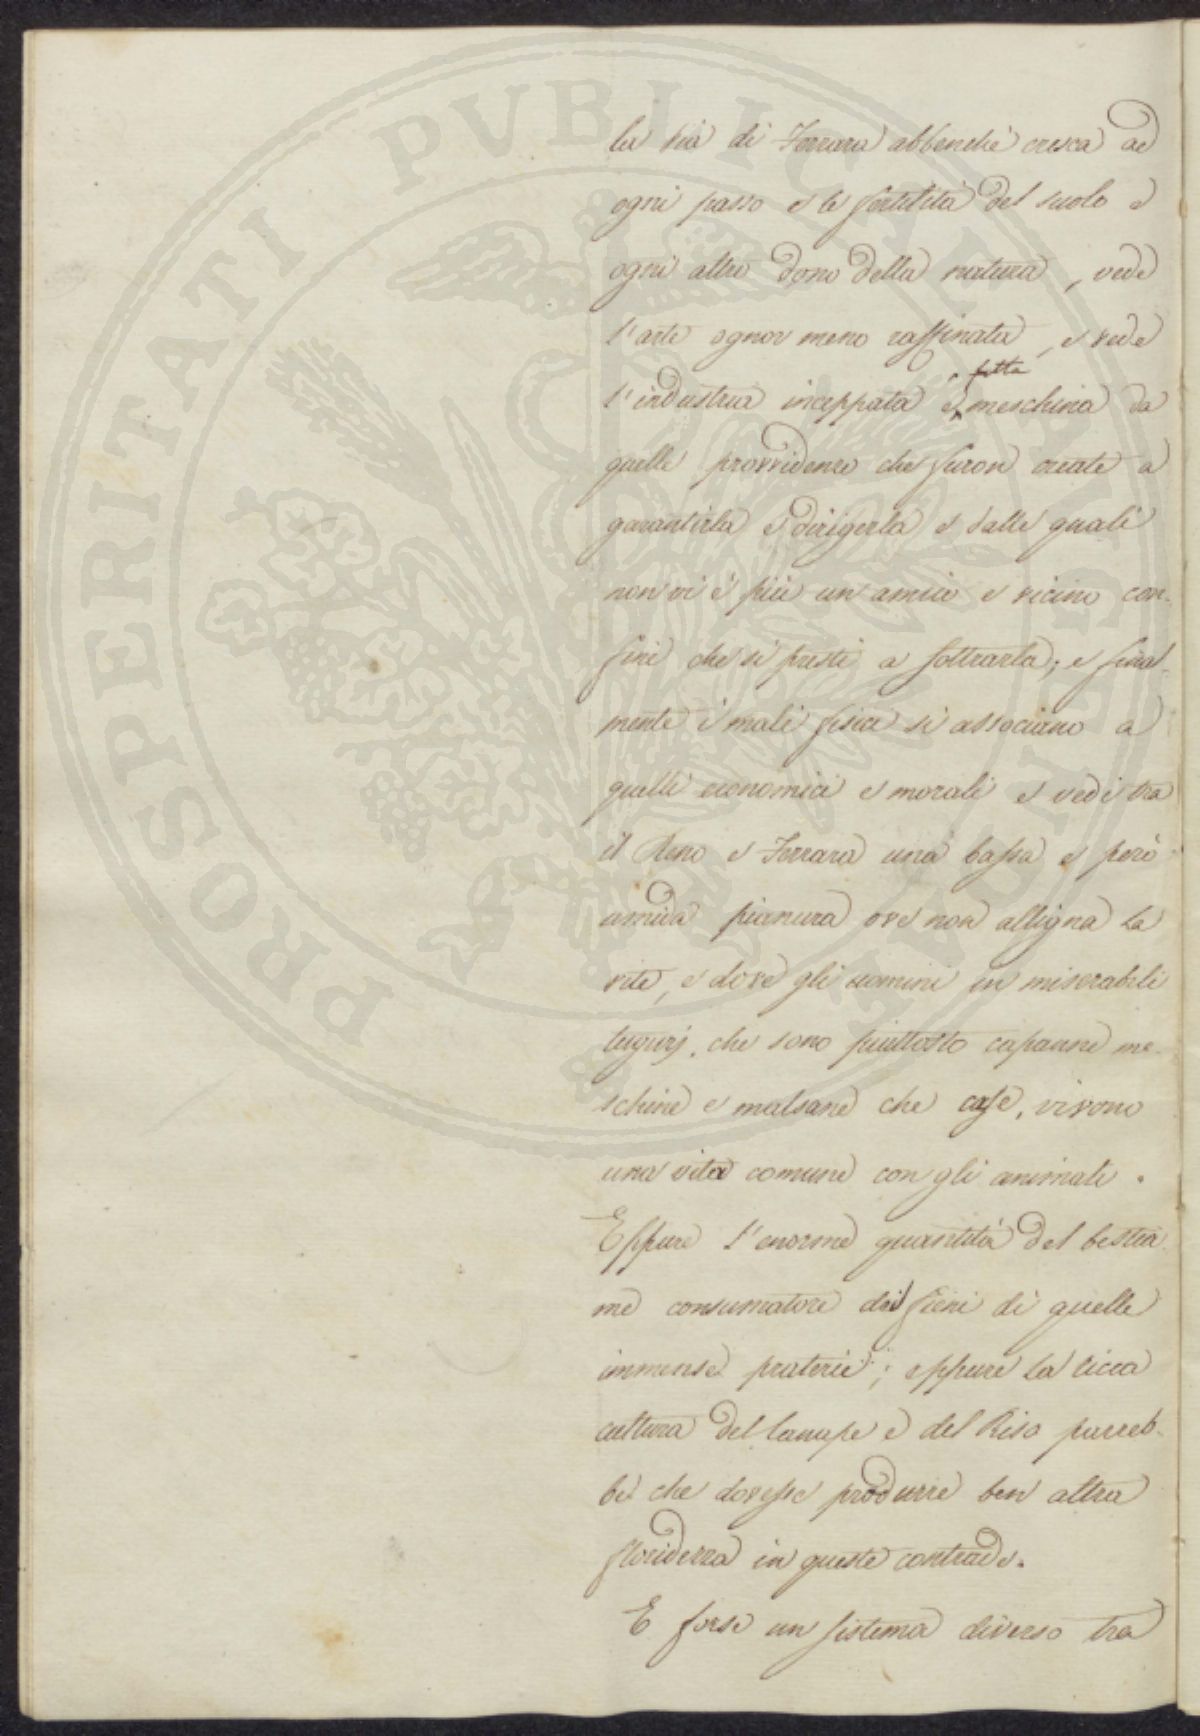 PROSPERITATI PUBLICAE
la via di Ferrara abbenchè cresca ad
ogni passo e la fertilità del suolo e
ogni altro dono della natura, vede
l'arte ognor meno raffinata, e vede
fatta
l'industria inceppata e meschina da
quelle provvidenze che furon create a
garantirla e dirigerla e dalle quali
non vi è più un amico e vicino con-
fine che si presti a sottrarla; e final-
mente i mali fisici si associano a
quelli economici e morali e vedi tra
il Reno e Ferrara una bassa e però
umida pianura ove non alligna la
vite, e dove gli uomini in miserabili
tugurj, che sono piuttosto capanne me-
schine e malsane che case, vivono
una vita comune con gli animali.
Eppure l'enorme quantità del bestia-
me consumatore dei fieni di quelle
immense praterie; eppure la ricca
cultura del Canape e del Riso parreb-
be che dovesse produrre ben altra
floridezza in queste contrade.
E forse un sistema diverso tra